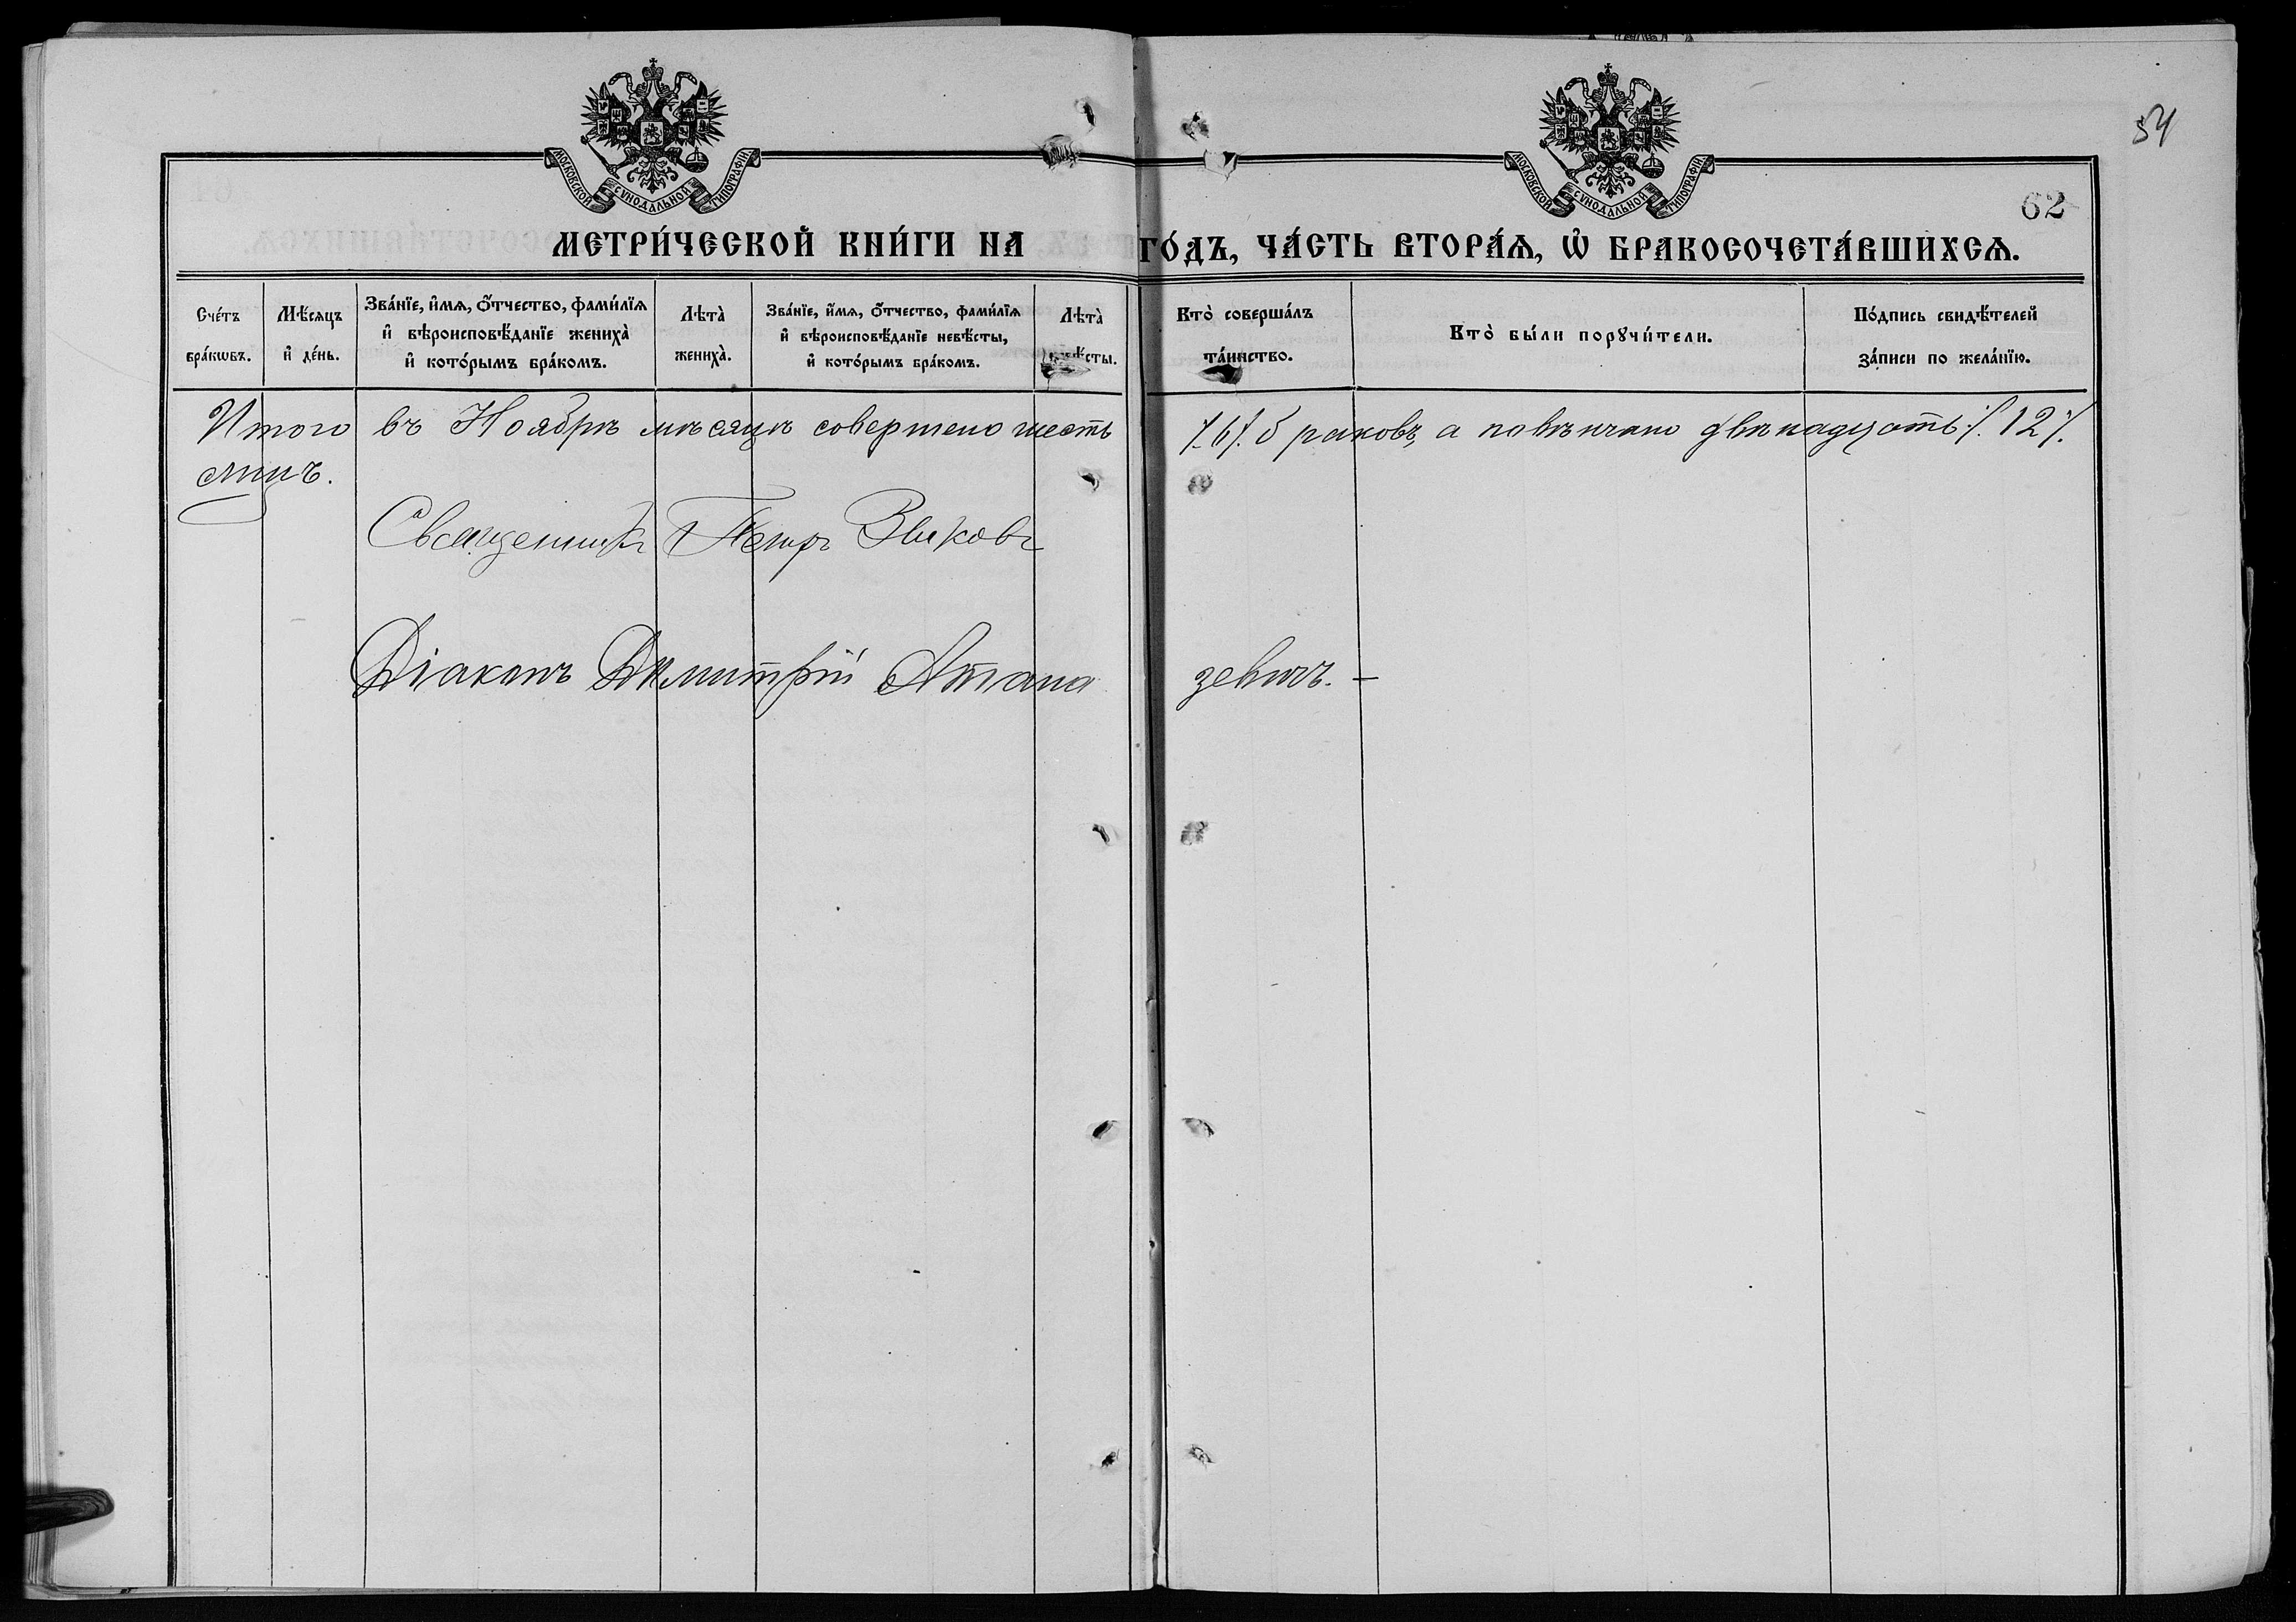 54
МОСКОВСКОЙ СѴНОДАЛЬНОЙ ТИПОГРАФІИ
МОСКОВСКОЙ СѴНОДАЛЬНОЙ ТИПОГРАФІИ
62
МЕТРИ́ЧЕСКОЙ КНИ́ГИ НА ГО́ДЪ, ЧА́СТЬ ВТОРА́Ѧ, Ѡ҆ БРАКОСОЧЕТА́ВШИХСѦ.
Сче́тъ бра́кѡвъ.
Мѣ́сяцъ и҆ де́нь.
Зва́нїе, и҆́мѧ, ѻ҆́тчество, фами́лїѧ и҆ вѣроисповѣ́данїе жениха̀ и҆ кото́рымъ бра́комъ.
Лѣта̀ жениха̀.
Зва́нїе, и҆́мѧ, ѻ҆́тчество, фами́лїѧ и҆ вѣроисповѣ́данїе невѣ́сты, и҆ кото́рымъ бра́комъ.
Лѣта̀ невѣ́сты.
Кто̀ соверша́лъ та́инство.
Кто̀ бы́ли порꙋчи́тели.
По́дпись свидѣ́телей за́писи по жела́нїю.
Итого въ Ноябрѣ мѣсяцѣ совершено шесть ⁒6⁒ браковъ, а повѣнчано двѣнадцать ⁒12⁒
лицъ.
Священникъ Петръ
Діаконъ Димитрій Атаназевичъ. –